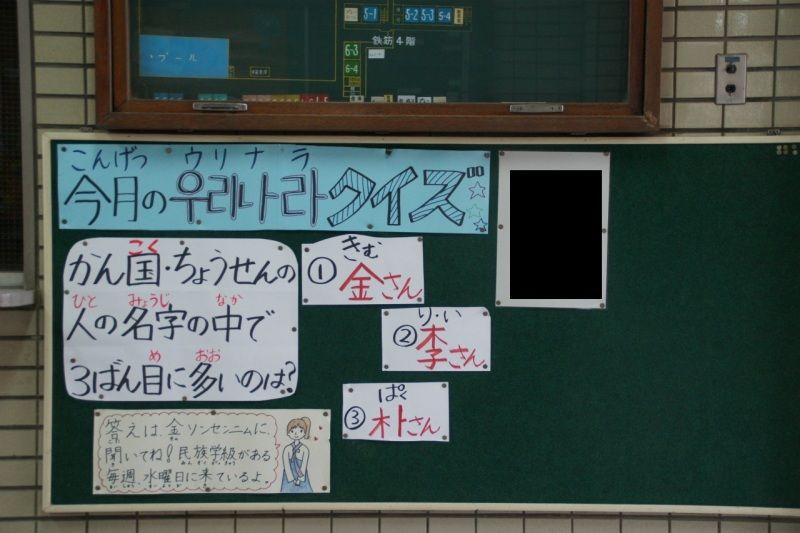 ・プール
5-1
5-2 5-3 5-4
鉄筋4階
6-3
6-4
こんげつ ウリナラ
今月の우리나라クイズ
こく
かん国・ちょうせんの
ひと みょうじ なか
人の名字の中で
め おお
3ばん目に多いのは?
きむ
①金さん
り・い
②李さん
ぱく
③朴さん
答えは、金ソンセンニムに、
聞いてね!民族学級がある
毎週、水曜日に来ているよ。